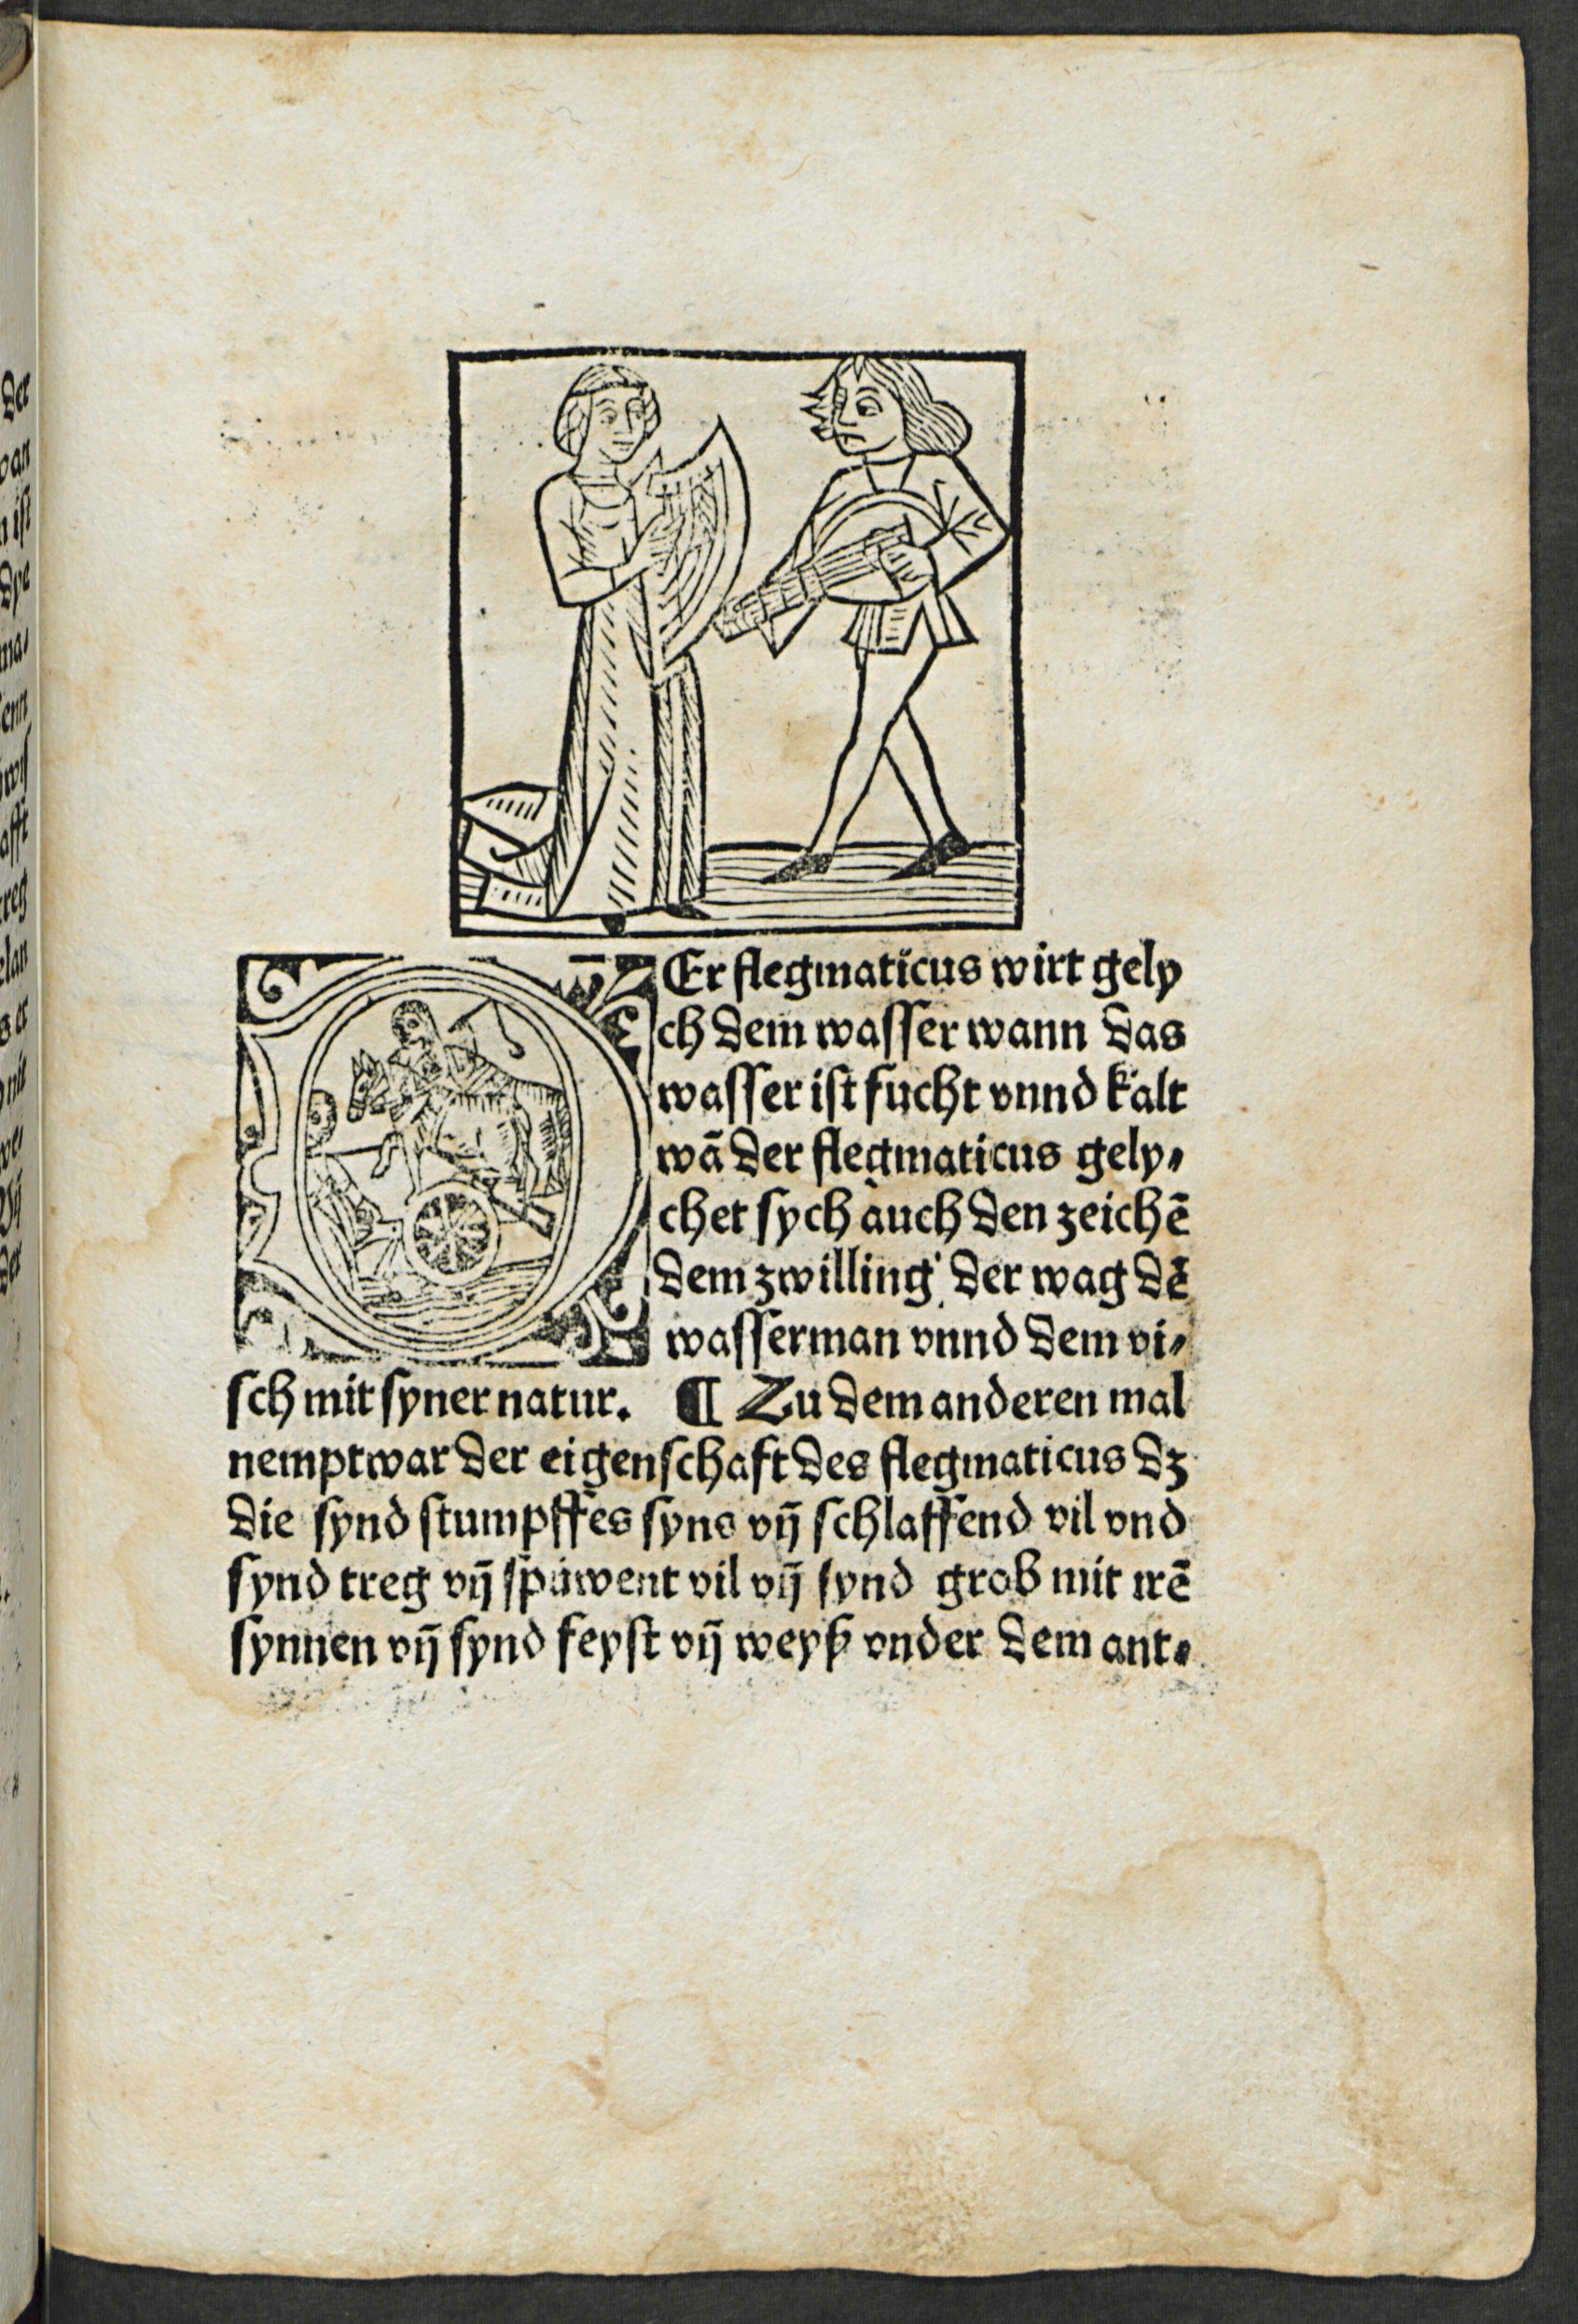 DEr flegmaticus wirt gely
ch dem wasser wann das
wasser ist fücht vnnd kalt
wā der flegmaticus gely⸗
chet sych auch den zeichē
dem zwilling der wag dē
wasserman vnnd dem vi⸗
sch mit syner natur. ¶ Zu dem anderen mal
nempt war der eigenschaft des flegmaticus dz
die synd stumpffes syns vñ schlaffend vil vnd
synd treg vñ spüwent vil vñ synd grob mit irē
synnen vñ synd feyst vñ weyß vnder dem ant⸗